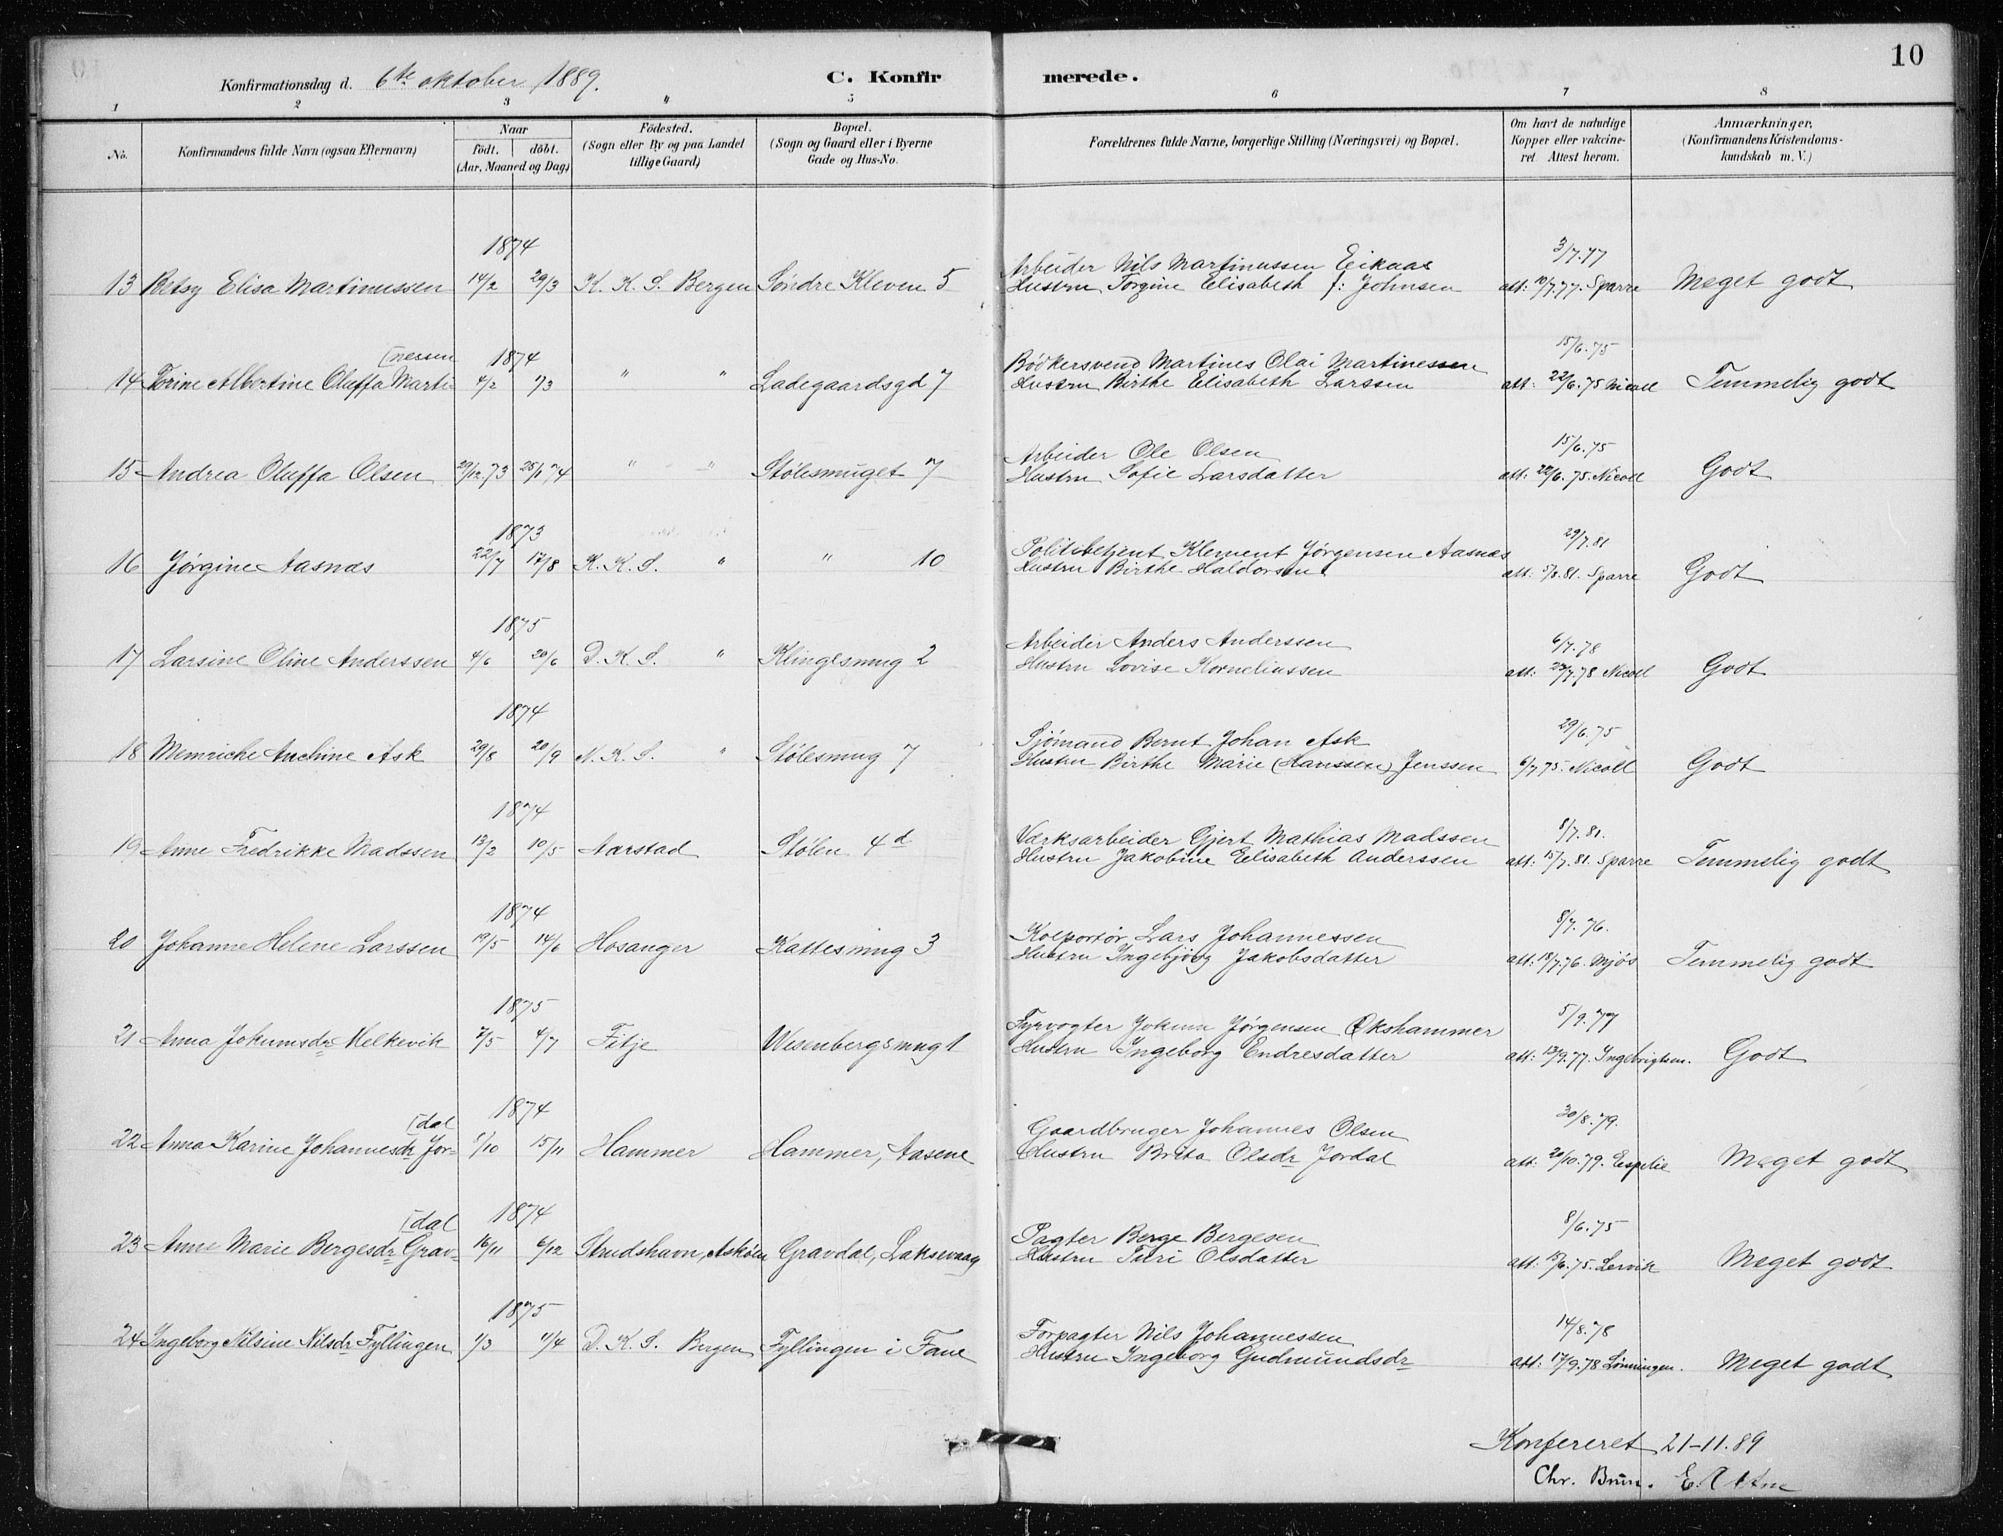 10
Konfirmationsdag d. 6te oktober 1889.
C. Konfirmerede.
1 2 3 " 5 6 7 8
No.
Konfirmandens fulde Navn (ogsaa Efternavn)
Naar
født. døbt.
(Aar, Maaned og Dag)
Fødested.
(Sogn eller By og paa Landet
tillige Gaard)
Bopæl.
(Sogn og Gaard eller i Byerne
Gade og Hus-No.
Forældrenes fulde Navne, borgerlige Stilling (Næringsvei) og Bopæl.
Om havt de naturlige
Kopper eller vaccine-
ret. Attest herom.
Anmærkninger,
(Konfirmandens Kristendoms-
kundskab m. V.)
1874 Arbeider Nils Martinussen Eikaas 3/7.77
13 Betsy Elisa Martinussen 14/2 29/3 K. K. S. Bergen Søndre Kleven 5 Hustru Torgine Elisabeth f: Johnsen att: 10/7.77. Sparre Meget godt
[nessen 1874 Bødkersvend Martines Olai Martinessen 15/6.75
14 Torine Albertine Oluffa Marti- 4/2 1/3 " " Ladegaardsgd 7 Hustru Birthe Elisabeth Larssen att: 22/6.75 Nicoll Temmelig godt
Arbeider Ole Olsen 15/6.75
15 Andrea Oluffa Olsen 29/12.73 25/1.74 " " Stølesmuget 7 Hustru Sofie Larsdatter att: 22/6.75. Nicoll Godt
1873 Politibetjent Klement Jørgensen Aasnæs 29/7.81
16 Jørgine Aasnæs 22/7 17/8 K. K. S. " " 10 Hustru Birthe Haldorsen att: 5/8.81. Sparre Godt
1875 Arbeider Anders Anderssen 6/7.78
17 Larsine Oline Anderssen 4/6 20/6 D. K. S. " Klingesmug 2 Hustru Lovise Korneliussen att: 27/7.78 Nicoll Godt
1874 Sjømand Bernt Johan Ask 29/6.75
18 Memriche Anchine Ask 29/8 20/9 N. K. S. " Stølesmug 7 Hustru Birthe Marie (Hanssen) Jenssen 6/7 75. Nicoll Godt
1874 Værksarbeider Gjert Mathias Madssen 8/7.81.
19 Anne Fredrikke Madssen 13/2 10/5 Aarstad Stølen 4d Hustru Jakobine Elisabeth Anderssen att: 15/7.81. Sparre Temmelig godt
1874 Kolportør Lars Johannessen 8/7.76.
20 Johanne Helene Larssen 19/5 14/6 Hosanger Kattesmug 3 Hustru Ingebjørg Jakobsdatter att: 18/7.76. Mjøs Temmelig godt
1875 Fyrvogter Jokum Jørgensen Økshammer 5/9.77
21 Anna Jokumsdr Melkevik 7/5 4/7 Fitje Wesenbergsmug 1 Hustru Ingeborg Endresdatter att: 13/9.77. Ingebrigtsen. Godt
[dal 1874 Gaardbruger Johannes Olsen 30/8.79.
22 Anna Karine Johannesdr Jor- 8/10 15/11 Hammer Hammer, Aasene Hustru Brita Olsdr Jordal att: 20/10.79. Espelie Meget godt
[dal 1874 Pagter Berge Bergesen 8/6.75
23 Anne Marie Bergesdr Grav- 16/11 6/12 Strudshavn, Askøen Gravdal, Laksevaag Hustru Turi Olsdatter att: 15/6.75. Lervik Meget godt
1875 Forpagter Nils Johannessen 14/8.78
24 Ingeborg Nilsine Nilsdr Fyllingen 1/3 11/4 D. K. S. Bergen Fyllingen i Fane Hustru Ingeborg Gudmundsdr att: 17/9.78 Lønningen. Meget godt
Konfereret 21-11.89
Chr. Bruun.